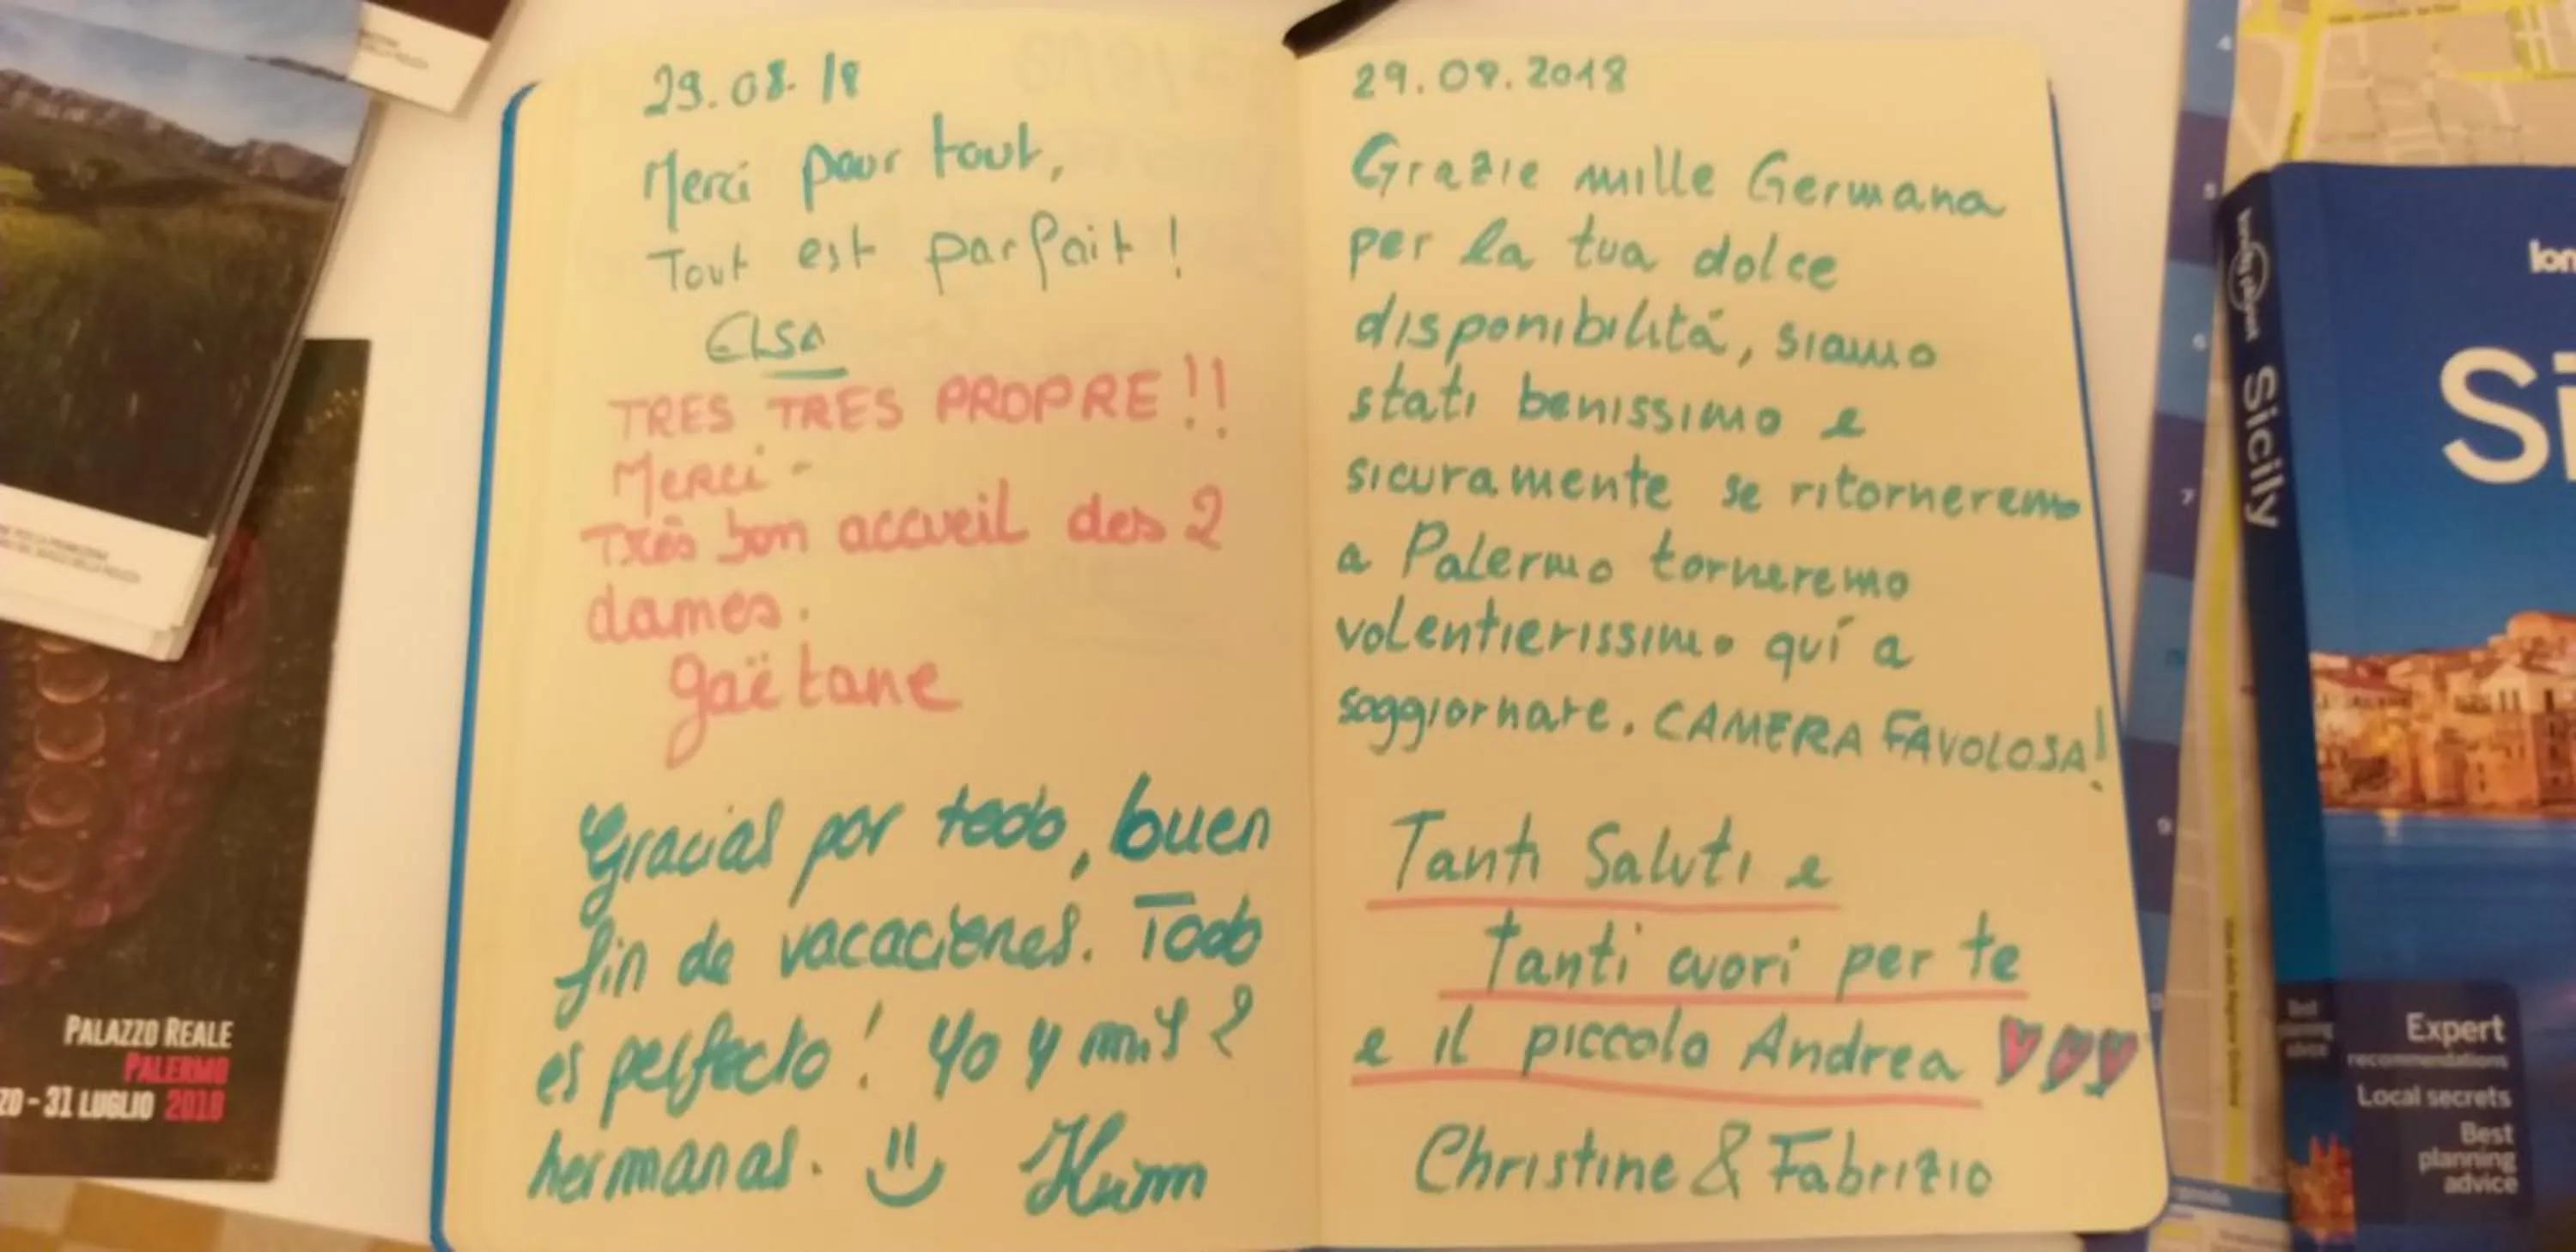 29.08.18
Merci pour tout,
Tout est parfait !
ELSA
TRES TRES PROPRE !!
Merci -
Très bon accueil des 2
dames.
Gaëtane
Gracias por todo, buen
fin de vacaciones. Todo
es perfecto! Yo y mis 2
hermanas.
29.08.2018
Grazie mille Germana
per la tua dolce
disponibilitá, siamo
stati benissimo e
sicuramente se ritorneremo
a Palermo torneremo
volentierissimo quí a
soggiornare. CAMERA FAVOLOSA!
Tanti Saluti e
tanti cuori per te
e il piccolo Andrea
Christine & Fabrizio
PALAZZO REALE
PALERMO
ZO - 31 LUGLIO 2018
lonely planet Sicily
lon
Si
Expert
recommendations
Local secrets
Best
planning
advice
Best
planning
advice
4
5
6
7
9